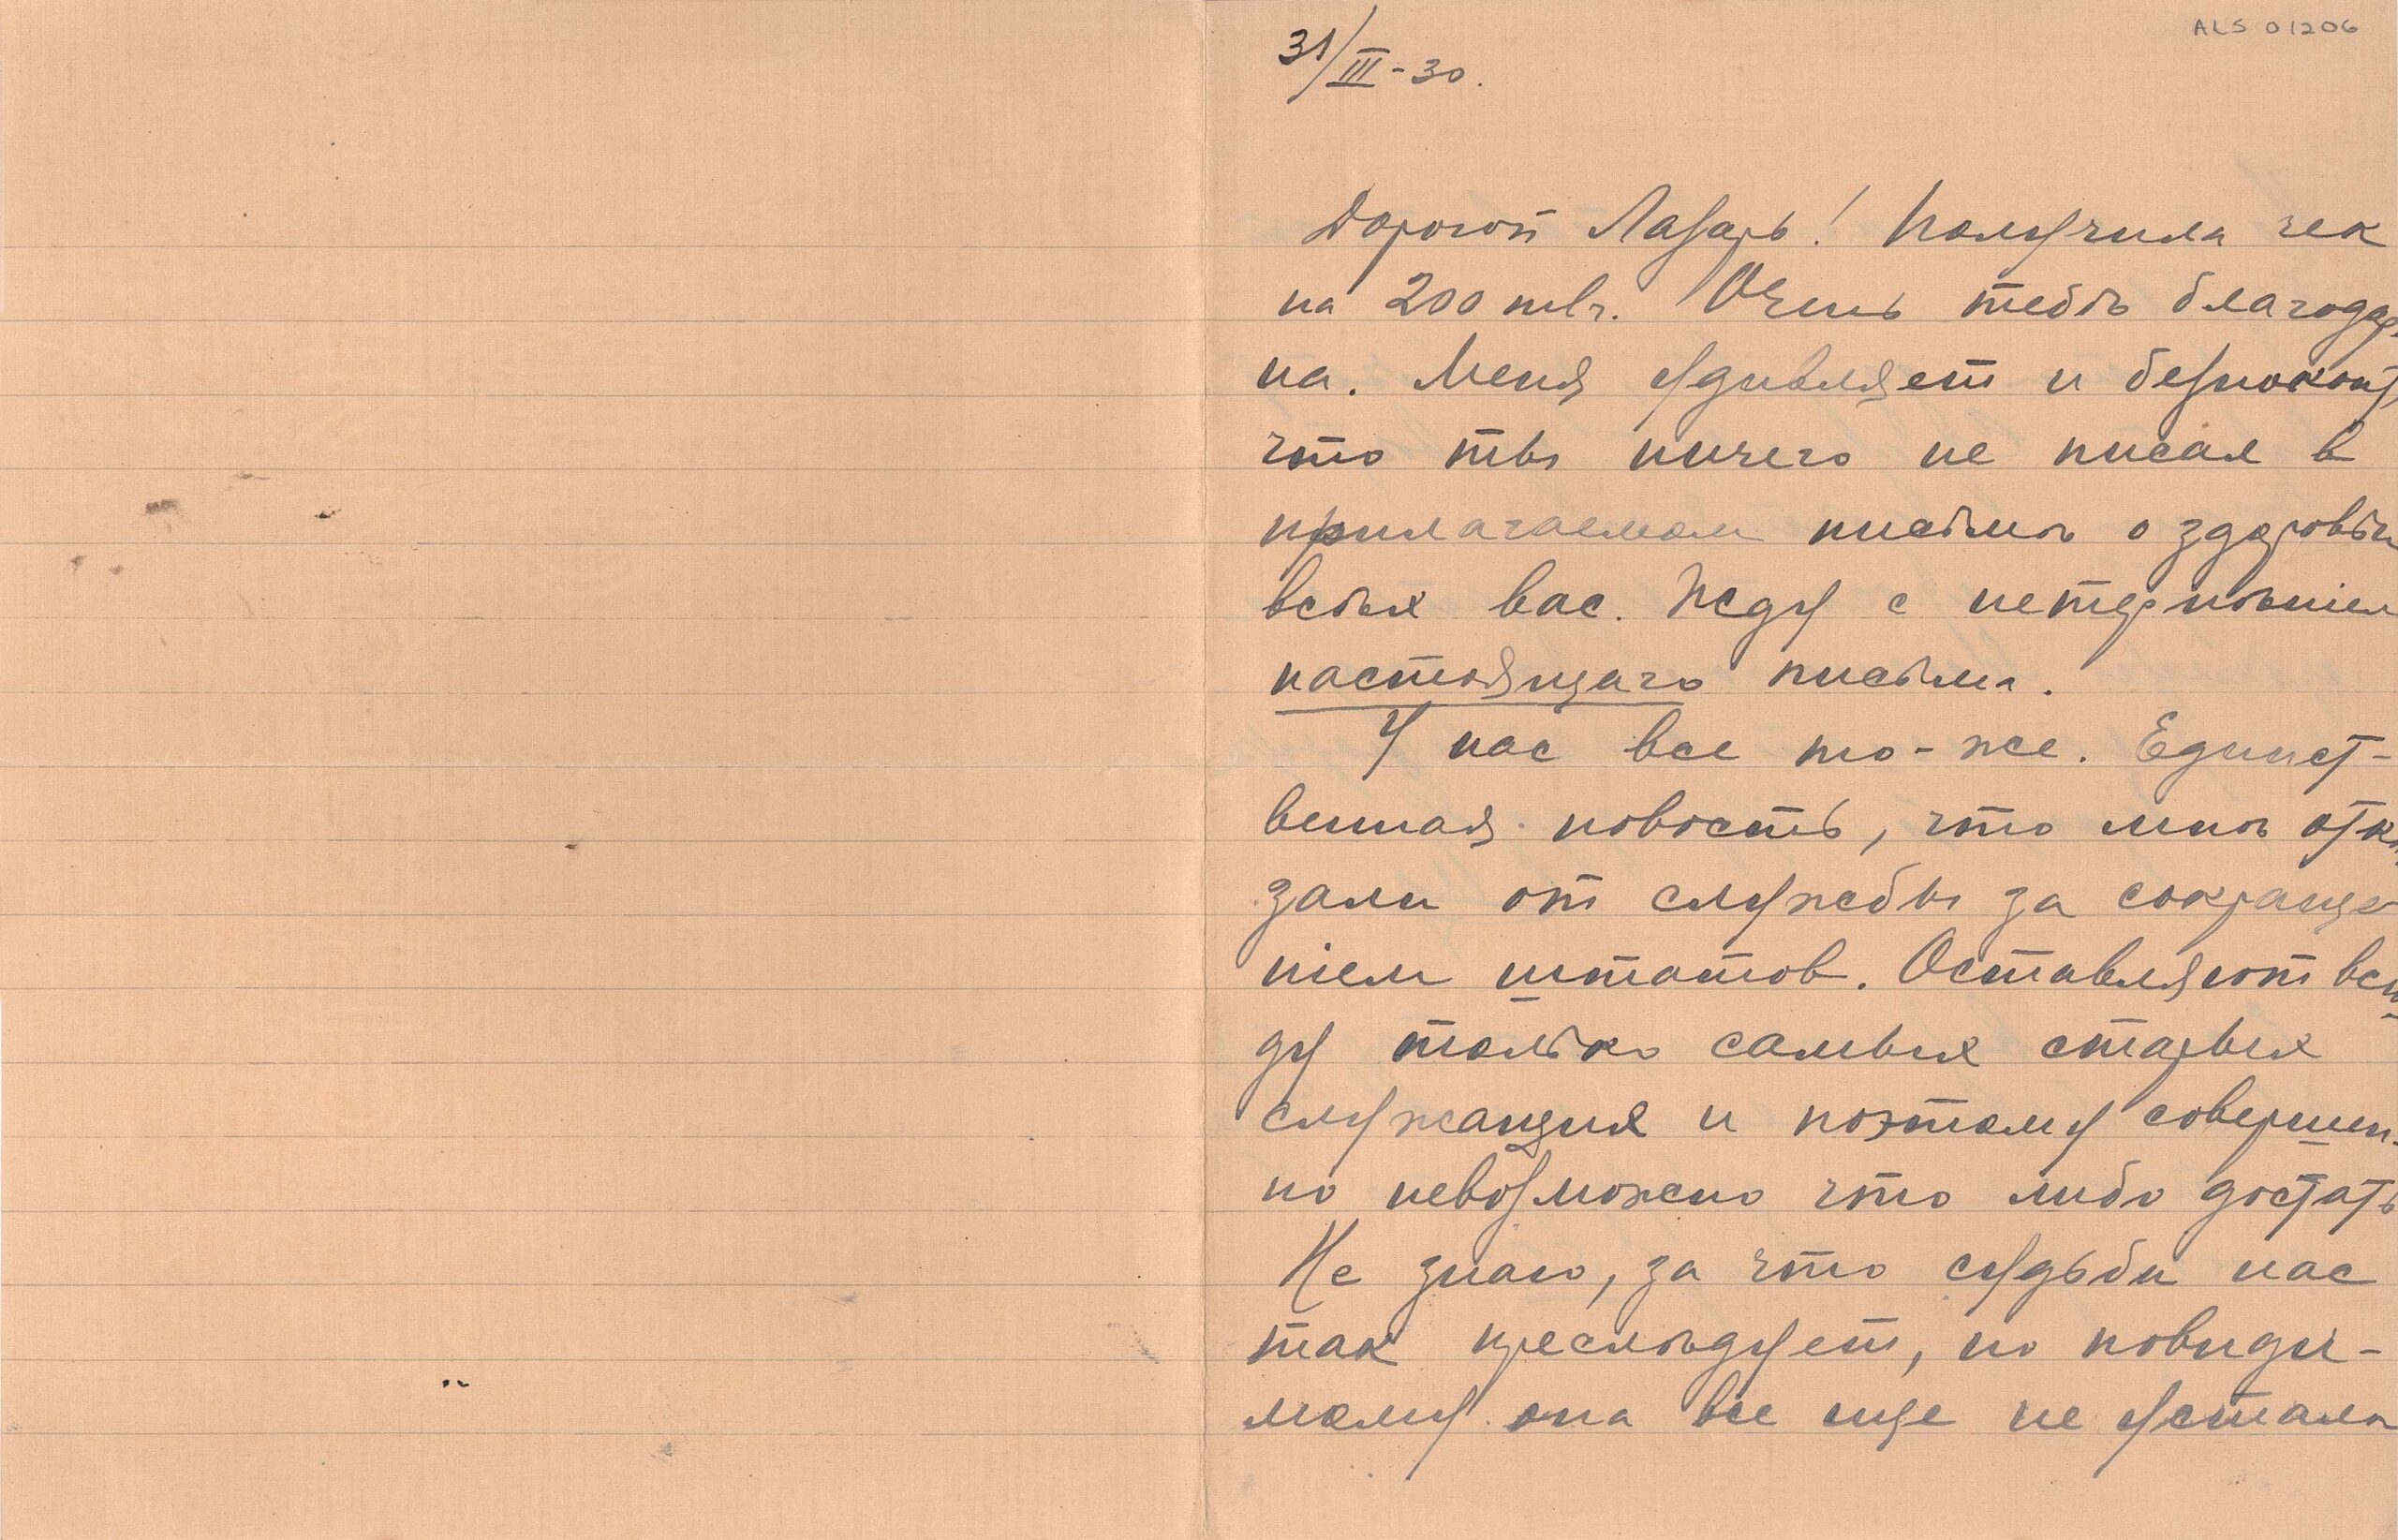 ALS 01206
31/III-30.
Дорогой Лазарь! Получила чек
на 200 шв. Очень тебѣ благодар
на. Меня удивляет и безпокоит,
что ты ничего не писал в
прилагаемом письмѣ о здоровьи
всѣх вас. Жду с нетерпѣніем
настоящаго письма.
У нас все то-же. Единст-
венная новость, что мнѣ отка
зали от службы за сокраще
ніем штатов. Оставляют всю
ду только самых старых
служащих и поэтому совершен-
но невозможно что либо достать
Не знаю, за что судьба нас
так преслѣдует, но повиди-
мому она все еще не устала